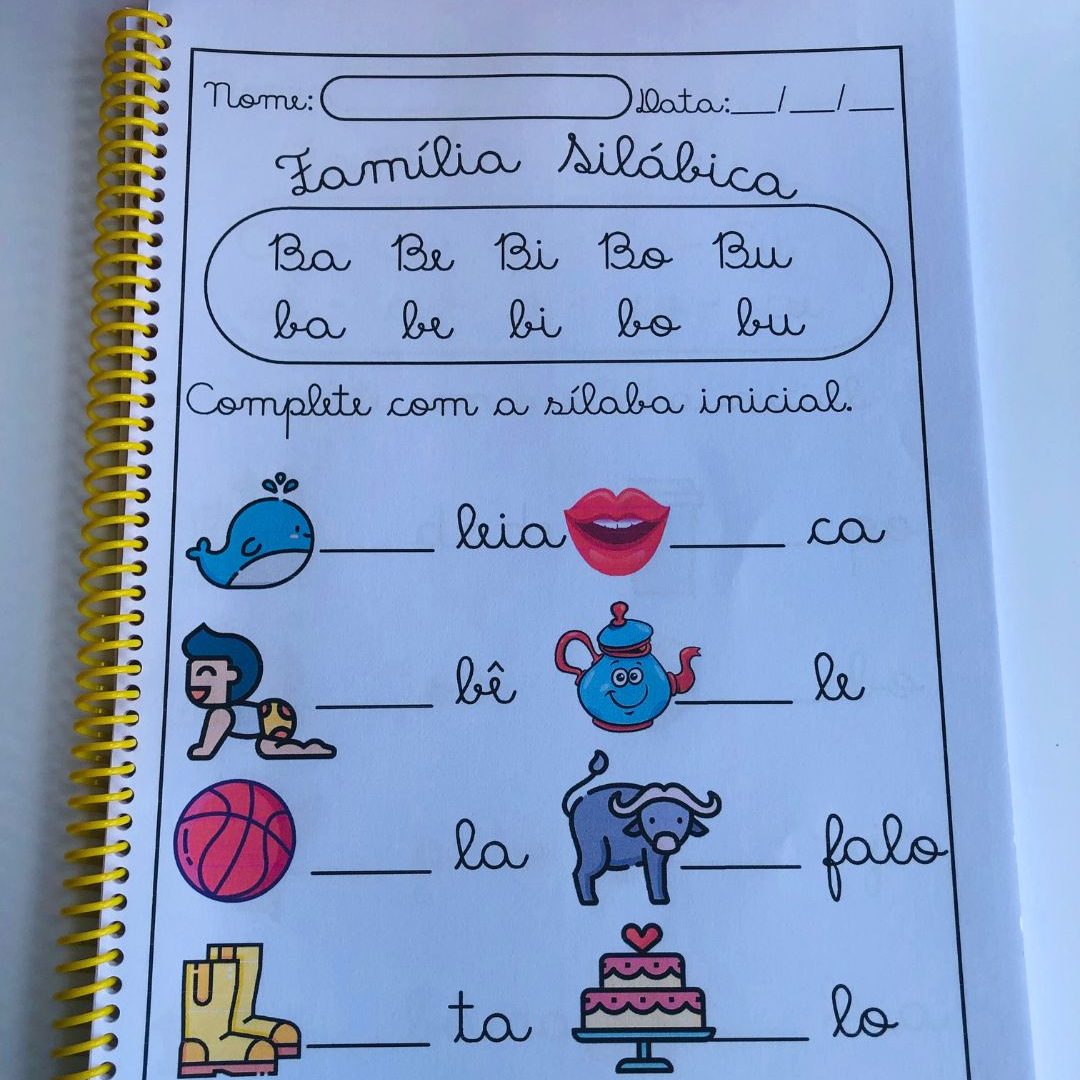 Nome: Data:__/__/__
Família Silábica
Ba Be Bi Bo Bu
ba be bi bo bu
Complete com a sílaba inicial.
____ leia ____ ca
____ bê ____ le
____ la ____ falo
____ ta ____ lo